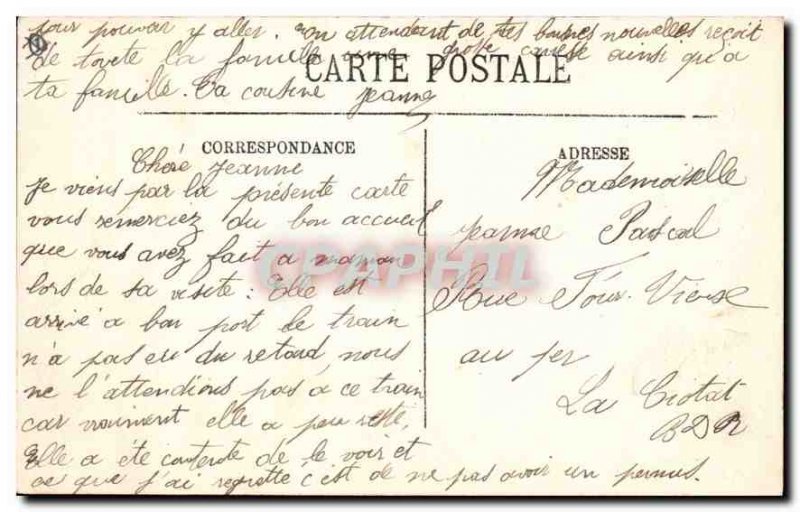 CARTE POSTALE
CORRESPONDANCE
Cheré Jeanne
Je viens par la présente carte
vous remerciez du bon accueil
que vous avez fait a maman
lors de sa visite : Elle est
arrivé a bon port le train
n'a pas eu du retard, nous
ne l'attendions pas a ce train
car vraiment elle a peu resté,
Elle a été contente de le voir et
ce que j'ai regretté c'est de ne pas avoir un permis.
pour pouvoir y aller. en attendant de tes bonnes nouvelles reçoit
de toute la famille une grosse caresse ainsi qu'a
ta famille. Ta cousine Jeanne
ADRESSE
Mademoiselle
Jeanne Pascal
Rue Four Vieux
au 1er
La Ciotat
BDR
CPAPHIL